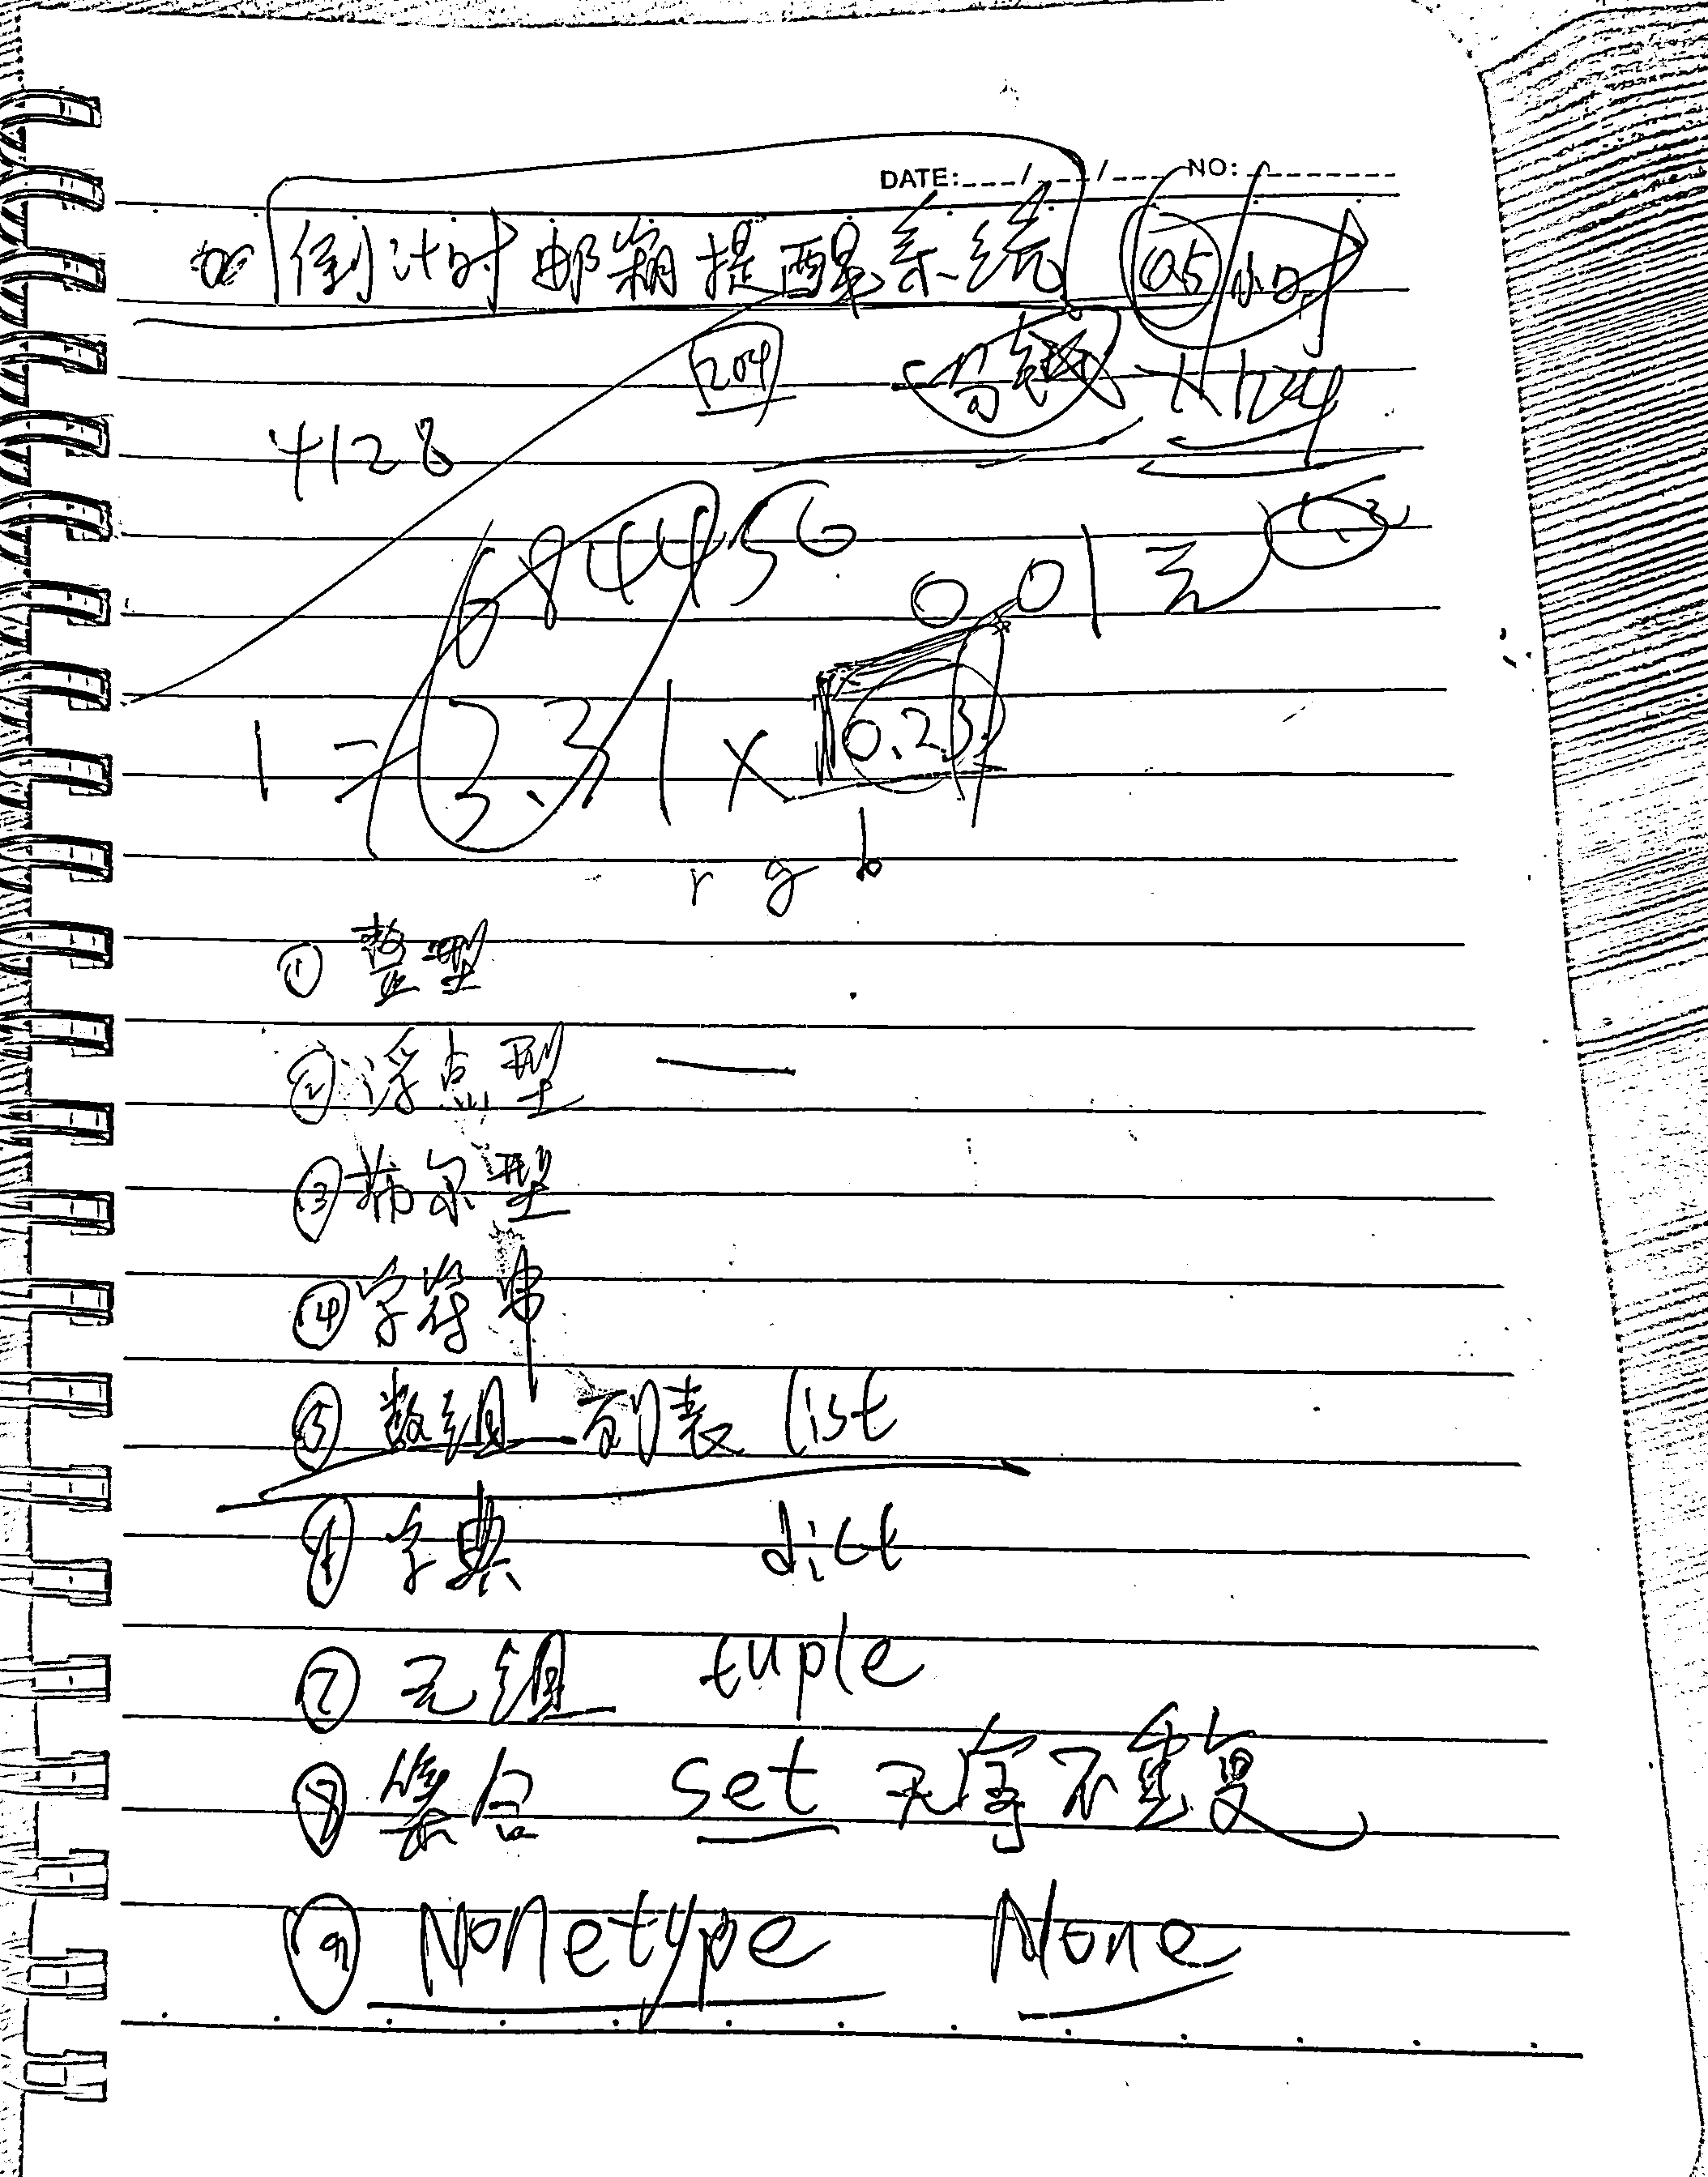 DATE: / / NO:
倒计时邮箱提醒系统 0.5小时
204
4128
684456
0.01元
1 = 3.31 × 0.23
r g b
① 整型
② 浮点型
③ 布尔型
④ 字符串
⑤ 数组 列表 list
字典 dict
⑦ 元组 tuple
⑧ 集合 set 无序不重复
⑨ Nonetype None